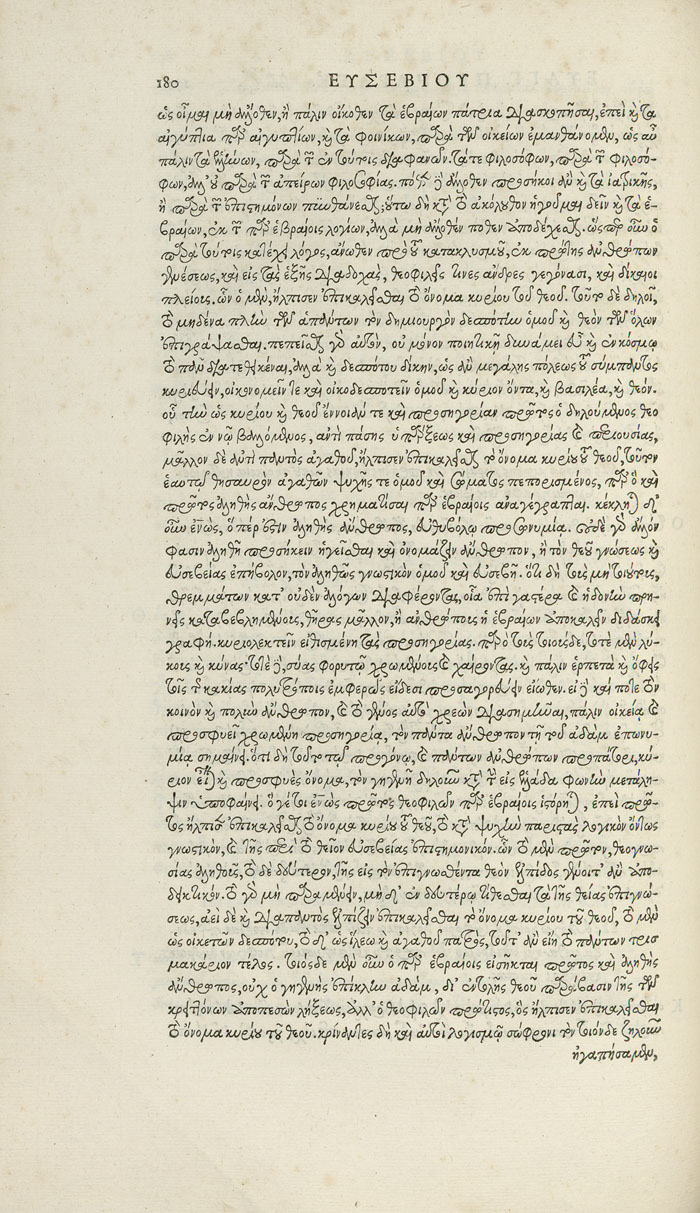 180 ΕΥΣΕΒΙΟΥ
ὡς οἶμαι μὴ ἄλλοθεν, ἢ πάλιν οἴκοθεν τὰ ἑβραίων πάτρια διασκοπῆσαι, ἐπεὶ καὶ τὰ
αἰγύπτια παρ' αἰγυπτίων, καὶ τὰ φοινίκων, παρὰ τῶν οἰκείων ἐμανθάνομεν, ὡς αὖ
πάλιν τὰ ἑλλήνων, παρὰ τῶν ἐν τούτοις διαφανῶν. τά τε φιλοσόφων, παρὰ τῶν φιλοσό-
φων, ἀλλ' οὐ παρὰ τῶν ἀπείρων φιλοσοφίας. πόθεν γὰρ ἄλλοθεν προσῆκοι ἂν καὶ τὰ ἰατρικῆς,
ἢ παρὰ τῶν ἐπιστημόνων πυνθάνεσθαι; οὕτω δὴ κατὰ τὸ ἀκόλουθον ἡγοῦμαι δεῖν καὶ τὰ ἑ-
βραίων, ἐκ τῶν παρ' ἑβραίοις λογίων, ἀλλὰ μὴ ἄλλοθέν ποθεν ἀποδέχεσθαι. ὥσπερ οὖν ὁ
παρὰ τούτοις κατέχει λόγος, ἄνωθεν πρὸ τοῦ κατακλυσμοῦ, ἐκ πρώτης ἀνθρώπων
γενέσεως, καὶ εἰς τὰς ἑξῆς διαδοχὰς, θεοφιλεῖς τινες ἄνδρες γεγόνασι, καὶ δίκαιοι
πλείοις. ὧν ὁ μὲν, ἤλπισεν ἐπικαλεῖσθαι τὸ ὄνομα κυρίου τοῦ θεοῦ. τοῦτο δὲ δηλοῖ,
τὸ μηδένα πλὴν τῶν ἁπάντων τὸν δημιουργὸν δεσπότην ὁμοῦ καὶ θεὸν τῶν ὅλων
ἐπιγράψασθαι. πεπεῖσθαι γὰρ αὐτὸν, οὐ μόνον ποιητικῇ δυνάμει εὖ καὶ ἐν κόσμῳ
τὸ πᾶν διατεθεικέναι, ἀλλὰ καὶ δεσπότου δίκην, ὡς ἂν μεγάλης πόλεως τοῦ σύμπαντος
κυριεύειν, οἰκονομεῖν τε καὶ οἰκοδεσποτεῖν ὁμοῦ καὶ κύριον ὄντα, καὶ βασιλέα, καὶ θεόν.
οὗ τὴν ὡς κυρίου καὶ θεοῦ ἔννοιάν τε καὶ προσηγορίαν πρῶτος ὁ δηλούμενος θεο
φιλὴς ἐν νῷ βαλόμενος, ἀντὶ πάσης ὑπάρξεως καὶ προσηγορίας καὶ περιουσίας,
μᾶλλον δὲ ἀντὶ παντὸς ἀγαθοῦ, ἤλπισεν ἐπικαλεῖσθαι τὸ ὄνομα κυρίου τοῦ θεοῦ, τοῦτον
ἑαυτῷ θησαυρὸν ἀγαθῶν ψυχῆς τε ὁμοῦ καὶ σώματος πεπορισμένος, παρ' ὃ καὶ
πρῶτος ἀληθὴς ἄνθρωπος χρηματίσαι παρ' ἑβραίοις ἀναγέγραπται. κέκληται δ'
οὖν ἐνὼς, ὅπερ ἐστὶν ἀληθὴς ἄνθρωπος, εὐθυβόλῳ προσωνυμίᾳ. οὐδὲ γὰρ ἄλλόν
φασιν ἀληθῆ προσήκειν ἡγεῖσθαι καὶ ὀνομάζειν ἄνθρωπον, ἢ τὸν θεοῦ γνώσεως καὶ
εὐσεβείας ἐπήβολον, τὸν ἀληθῶς γνωστικὸν ὁμοῦ καὶ εὐσεβῆ. ὅτι δὴ τοὺς μὴ τούτοις,
θρεμμάτων κατ' οὐδὲν ἀλόγων διαφέροντας, οἷα ἐπὶ γαστέρα καὶ ἡδονὴν πρη-
νεῖς καταβεβλημένοις, θῆρας μᾶλλον, ἢ ἀνθρώποις ἡ ἑβραίων ἀποκαλεῖν διδάσκει
γραφή. κυριολεκτεῖν εἰθισμένη τὰς προσηγορίας. παρ' ὃ τοὺς τοιούσδε, τοτὲ μὲν λύ-
κοις καὶ κύνας· τοτὲ δὲ, σύας φορυτῷ χρωμένοις καὶ χαίροντας. καὶ πάλιν ἑρπετὰ καὶ ὄφεις
τοῖς τῆς κακίας πολυτρόποις ἐμφερῶς εἴδεσι προσαγορεύειν εἴωθεν. εἰ δὲ καί ποτε τὸν
κοινὸν καὶ πολὺν ἄνθρωπον, καὶ τὸ γένος αὐτὸ χρεὼν διασημῆναι, πάλιν οἰκείᾳ καὶ
προσφυεῖ χρωμένη προσηγορίᾳ, τὸν πάντα ἄνθρωπον τῇ τοῦ ἀδὰμ ἐπωνυ-
μίᾳ σημαίνει. ὅτι δὴ τοῦτο τῷ προγόνῳ, καὶ πάντων ἀνθρώπων προπάτορι, κύ-
ριον εἶναι καὶ προσφυὲς ὄνομα, τὸν γηγενῆ δηλοῦν κατὰ τὴν εἰς ἑλλάδα φωνὴν μετάλη-
ψιν ὑποφαίνει. ὅ γέ τοι ἐνὼς πρῶτος θεοφιλῶν παρ' ἑβραίοις ἱστόρηται, ἐπεὶ πρῶ-
τος ἤλπισεν ἐπικαλεῖσθαι τὸ ὄνομα κυρίου τοῦ θεοῦ, τὸ κατὰ ψυχὴν παριστὰς λογικὸν ὄντως
γνωστικὸν, καὶ τῆς περὶ τὸ θεῖον εὐσεβείας ἐπιστημονικόν. ὧν τὸ μὲν πρῶτον, θεογνω-
σίας ἀληθοῦς, τὸ δὲ δεύτερον, τῆς εἰς τὸν ἐπιγνωσθέντα θεὸν ἐλπίδος γένοιτ' ἂν ἀπο-
δεικτικόν. τὸ γὰρ μὴ παραμένειν, μὴ δ' ἐν δευτέρῳ τίθεσθαι τὰ τῆς θείας ἐπιγνώ-
σεως, ἀεὶ δὲ καὶ διαπαντὸς ἐλπίζειν ἐπικαλεῖσθαι τὸ ὄνομα κυρίου τοῦ θεοῦ, τὸ μὲν
ὡς οἰκετῶν δεσπότου, τὸ δ' ὡς ἵλεω καὶ ἀγαθοῦ πατρὸς, τοῦτ' ἂν εἴη τὸ πάντων τρισ
μακάριον τέλος. τοιόσδε μὲν οὖν ὁ παρ' ἑβραίοις εἰσῆκται πρῶτος καὶ ἀληθὴς
ἄνθρωπος, οὐχ ὁ γηγενὴς ἐπίκλην ἀδὰμ, δι' ἐντολῆς θεοῦ παράβασιν τῆς τῶν
κρειττόνων ἀποπεσὼν λήξεως, ἀλλ' ὁ θεοφιλῶν πρώτιστος, ὃς ἤλπισεν ἐπικαλεῖσθαι
τὸ ὄνομα κυρίου τοῦ θεοῦ. κρίναντες δὴ καὶ αὐτοὶ λογισμῷ σώφρονι τὸν τοιόνδε ζηλοῦν
ἠγαπήσαμεν,